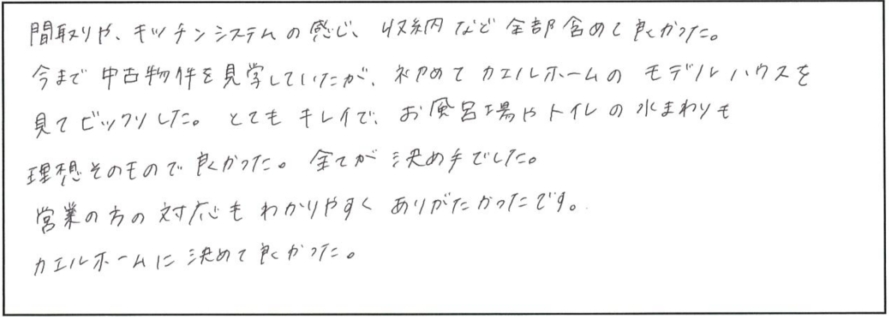 間取りや、キッチンシステムの感じ、収納など全部含めて良かった。
今まで中古物件を見学していたが、初めてカエルホームのモデルハウスを
見てビックリした。とてもキレイで、お風呂場やトイレの水まわりも
理想そのもので良かった。全てが決め手でした。
営業の方の対応もわかりやすくありがたかったです。
カエルホームに決めて良かった。